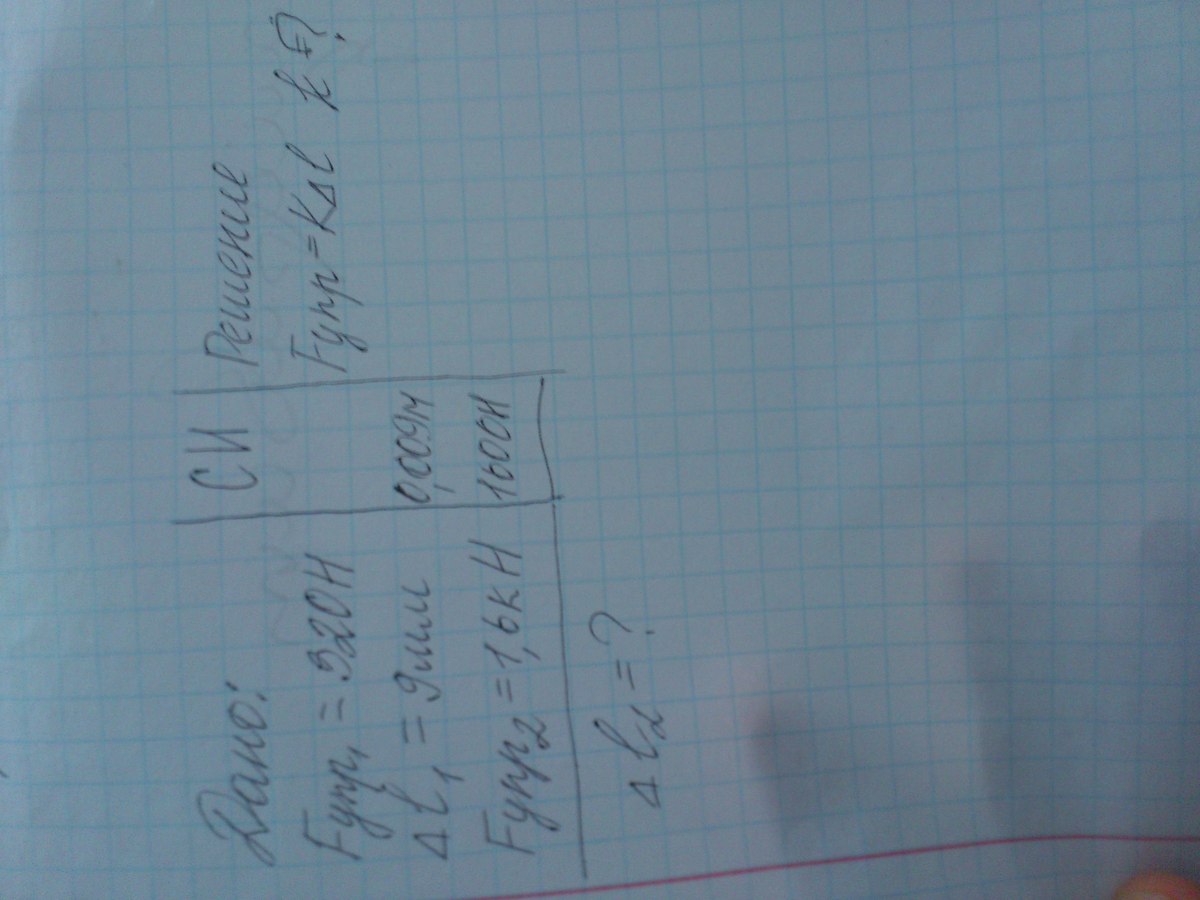 Дано:
Fупр₁ = 320Н
Δl₁ = 9мм
Fупр₂ = 1,6кН
Δl₂ = ?
СИ
0,009м
1600Н
Решение
Fупр = КΔl k = ?